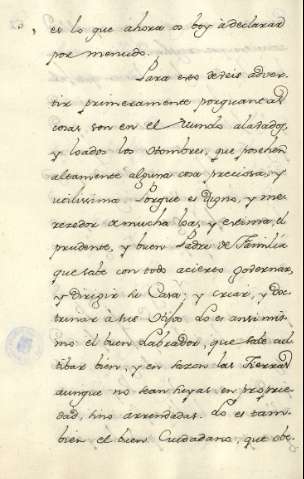 es lo que ahora os boy à declarar
por menudo.
Para esto deveis adver-
tir primeramente por quantas
cosas son en el Mundo alabados,
y loados los Hombres, que posehen
altamente alguna cosa preciosa, y
utilissima. Porque es digno, y me-
recedor de mucha loa, y estima, el
prudente, y buen Padre de Familia
que sabe con todo acierto governar,
y dirigir su Casa; y criar, y doc-
trinar à sus Hijos. Lo es ansimis-
mo el buen Labrador, que sabe cul-
tibar bien, y en sazon las Tierras
aunque no sean suyas en proprie-
dad, sino arrendadas. Lo es tam-
bien el buen Ciudadano, que obe-